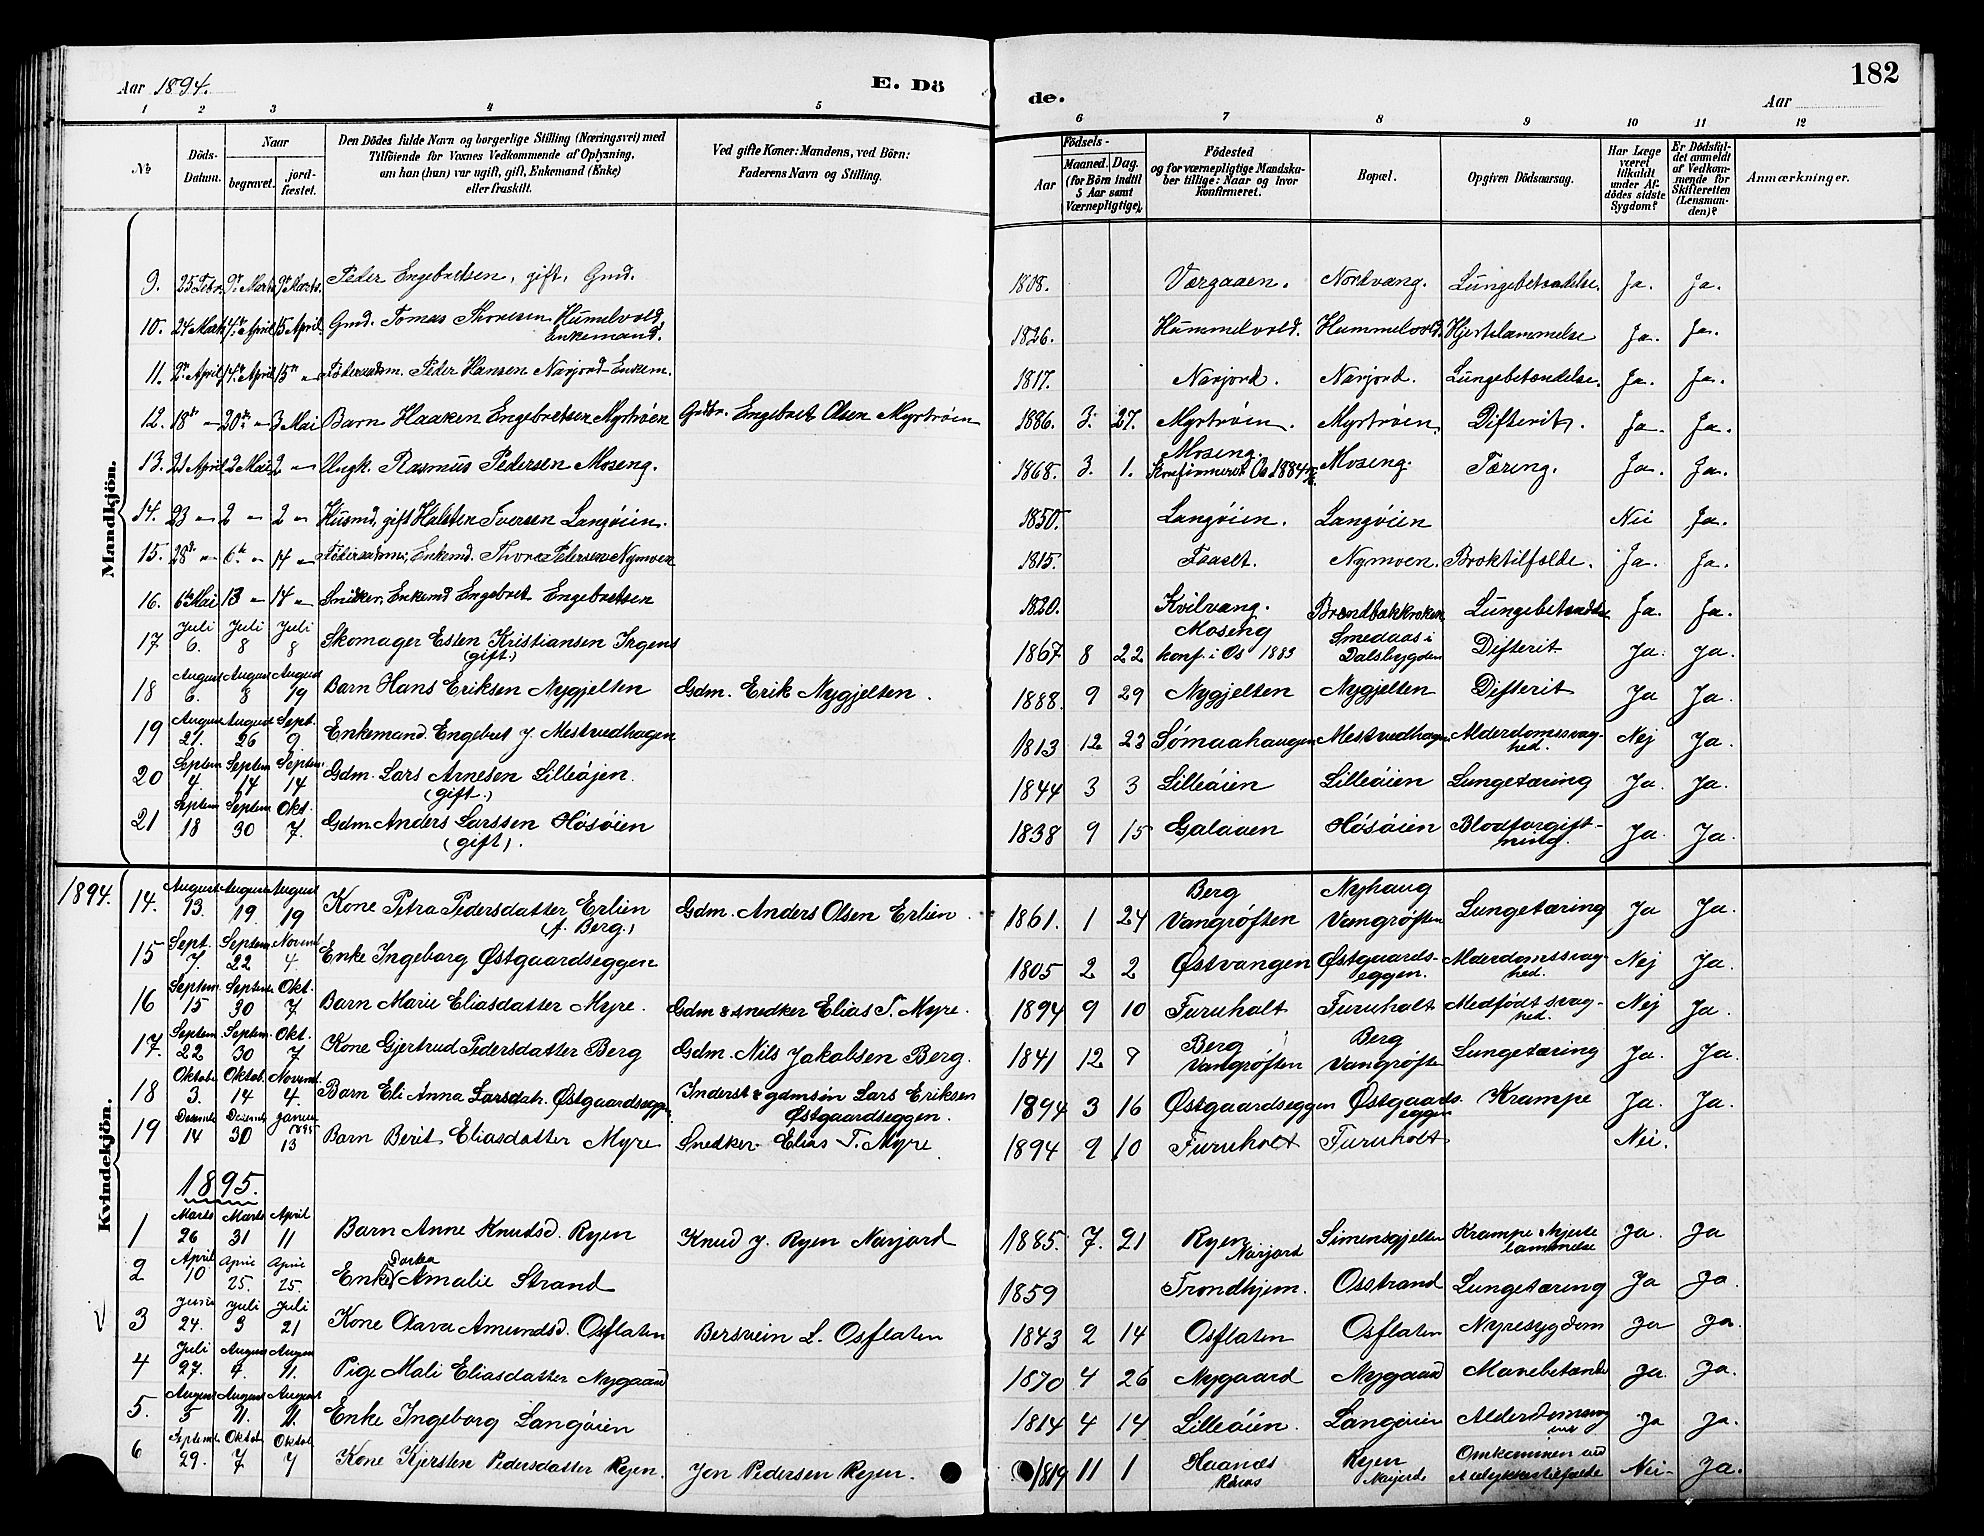 Aar 1894.
E. Dö
de.
182
Aar
1 2 3 4 5 6 7 8 9 10 11 12
No
Döds-Datum.
Naar
begravet.
jord-fæstet.
Den Dödes fulde Navn og borgerlige Stilling (Næringsvei) med
Tilföiende for Voxnes Vedkommende af Oplysning,
om han (hun) var ugift, gift, Enkemand (Enke)
eller fraskilt.
Ved gifte Koner: Mandens, ved Börn:
Faderens Navn og Stilling.
Födsels-
Aar
Maaned. Dag.
(for Börn indtil
5 Aar samt
Værnepligtige).
Födested
og for værnepligtige Mandska-
ber tillige: Naar og hvor
konfirmeret.
Bopæl.
Opgiven Dödsaarsag.
Har Læge
været
tilkaldt
under Af-
dödes sidste
Sygdom?
Er Dödsfal-
det anmeldt
af Vedkom-
mende for
Skifteretten
(Lensman-
den)?
Anmærkninger.
Mandkjön.
9. 25 Febr. 9de Marts 9de Marts. Peder Engebretsen, gift, Gmd. 1808. Værgaaen. Nordvang. Lungebetændelse. Ja. Ja.
10. 24 Marts 4de April 15 April Gmd. Tomas Thoresen Hummelvold, Enkemand. 1826. Hummelvold. Hummelvold. Hjertelammelse Ja. Ja.
11. 2den April 14de April 15de " Födersadsm. Peder Hansen Narjord-Enkem. 1817. Narjord. Narjord. Lungebetændelse. Ja. Ja.
12. 18de " 20de " 3 Mai Barn Haaken Engebretsen Myrtröen Gmbr. Engebret Olsen Myrtröen 1886. 3. 27. Myrtröen. Myrtröen. Difterit. Ja. Ja.
13. 21 April 2 Mai 2 " Ungk. Rasmus Pedersen Moseng. 1868. 3. 1. Moseng. Konfirmeret Os 1884 Moseng. Tæring. Ja. Ja.
14. 23 " 2 " 2 " Husmd, gift Halsten Iversen Langöien. 1850. Langöien. Langöien Nei Ja.
15. 28de " 6te " 14 " Födersadsm, Enkemd. Thore Pedersen Nymoen 1815. Faaset. Nymoen. Broktilfælde. Ja. Ja.
16. 6te Mai 13 " 14 " Snedker, Enkemd Engebret Engebretsen 1820. Kvilvang. Brændbakkroken Lungebetændelse Ja. Ja.
17 Juli 6. Juli 8 Juli 8 Skomager Esten Kristiansen Irgens (gift) 1867 8 22 Moseng konf. i Os 1883 Smedaas i Dalsbygden Difterit Ja. Ja.
18 August 6. August 8 August 19 Barn Hans Eriksen Nygjelten Gdm. Erik Nygjelten. 1888. 9 29 Nygjelten Nygjelten Difterit Ja Ja.
19 August 21. August 26 Sept. 9. Enkemand. Engebret J. Mestvedhagen 1813 12 23 Sømaahaugen Mestvedhagen Alderdomssvag-hed. Nej Ja.
20 Septem 4. Septem 14 Septem 14 Gdm. Lars Arnesen Lilleøjen. (gift.) 1844 3 3 Lilleøien Lilleøien Lungetæring Ja. Ja.
21 Septem 18 Septem 30 Okt. 7. Gdm. Anders Larssen Høsøien (gift). 1838 9 15 Galaaen Høsøien Blodforgift-ning. Ja. Ja
Kvindekjön.
1894. 14. August 13. August 19 August 19 Kone Petra Pedersdatter Erlien (f. Berg.) Gdm. Anders Olsen Erlien. 1861. 1 24 Berg Vangrøften Nyhaug Vangrøften Lungetæring Ja Ja.
15 Sept. 7. Septem 22 Novemb 4. Enke Ingeborg Østgaardseggen 1805 2 2 Østvangen Østgaards-eggen. Alderdomssvag-hed. Nej Ja.
16 Septem 15 Septem 30 Okt. 7 Barn Marie Eliasdatter Myre. Gdm & snedker Elias T. Myre. 1894 9 10 Furuholt Furuholt Medfødt svag-hed. Nej Ja.
17. Septem 22 Septem. 30 Okt. 7 Kone Gjertrud Pedersdatter Berg Gdm. Nils Jakobsen Berg. 1841 12 8 Berg Vangrøften Berg Vangrøften Lungetæring Ja. Ja.
18 Oktobr 3. Oktob. 14 Novemb 4. Barn Eli Anna Larsdatr. Østgaardseggen Inderst & gdmsøn Lars Eriksen Østgaardseggen. 1894 3 16 Østgaardseggen Østgaards-eggen Krampe Ja. Ja.
19 Desembr 14 Desembr 30 Januar 1895 13 Barn Berit Eliasdatter Myre Snedker Elias T. Myre 1894 9 10 Furuholt Furuholt Nei.
1895.
1 Marts 26 Marts 31 April 11 Barn Anne Knudsd. Ryen Knud J. Ryen Narjord 1885. 7. 21 Ryen Narjord Simensgjelten Krampe & hjerte lammelse Ja. Ja
2 April 10 April 25. April 25. Enke Dorthea Amalie Strand 1859 Trondhjem. Osstrand Lungetæring Ja Ja.
V 3 Juni 24. Juli 3 Juli 21 Kone Olava Amundsd. Osflaten Bersvein L. Osflaten 1843 2 14 Osflaten Osflaten Nyresygdom Ja Ja.
4 Juli 27. August 4. August 11. Pige Mali Eliasdatter Nygaard 1870 4 26 Nygaard Nygaard Mavebetændelse Ja. Ja.
5. August 5 August 11. August 11. Enke Ingeborg Langøien 1814 4 14 Lilleøien. Langøien Ja Ja.
6 Septembr 29. Oktob 7 Oktob 7 Kone Kjersten Pedersdatter Ryen. Jon Pedersen Ryen. 1819 11 1 Haanæs Røros Ryen Narjord Omkommen ved et ulykkestilfælde Nei. Ja.